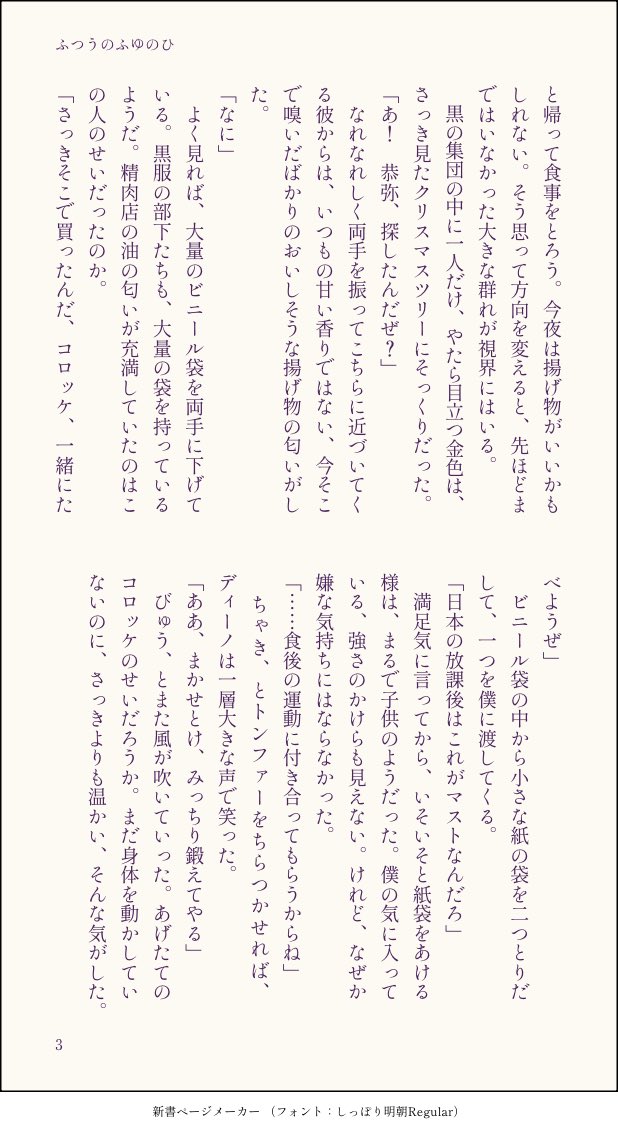 ふつうのふゆのひ
と帰って食事をとろう。今夜は揚げ物がいいかも
しれない。そう思って方向を変えると、先ほどま
ではいなかった大きな群れが視界にはいる。
　黒の集団の中に一人だけ、やたら目立つ金色は、
さっき見たクリスマスツリーにそっくりだった。
「あ！　恭弥、探したんだぜ？」
　なれなれしく両手を振ってこちらに近づいてく
る彼からは、いつもの甘い香りではない、今そこ
で嗅いだばかりのおいしそうな揚げ物の匂いがし
た。
「なに」
　よく見れば、大量のビニール袋を両手に下げて
いる。黒服の部下たちも、大量の袋を持っている
ようだ。精肉店の油の匂いが充満していたのはこ
の人のせいだったのか。
「さっきそこで買ったんだ、コロッケ、一緒にた
べようぜ」
　ビニール袋の中から小さな紙の袋を二つとりだ
して、一つを僕に渡してくる。
「日本の放課後はこれがマストなんだろ」
　満足気に言ってから、いそいそと紙袋をあける
様は、まるで子供のようだった。僕の気に入って
いる、強さのかけらも見えない。けれど、なぜか
嫌な気持ちにはならなかった。
「……食後の運動に付き合ってもらうからね」
　ちゃき、とトンファーをちらつかせれば、
ディーノは一層大きな声で笑った。
「ああ、まかせとけ、みっちり鍛えてやる」
　びゅう、とまた風が吹いていった。あげたての
コロッケのせいだろうか。まだ身体を動かしてい
ないのに、さっきよりも温かい、そんな気がした。
3
新書ページメーカー （フォント：しっぽり明朝Regular）